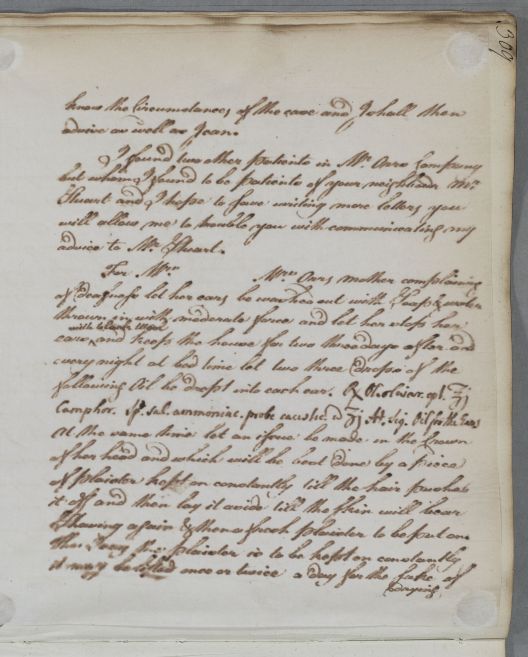 309
know the Circumstances of the case and I shall then
advise as well as I can.
I found two other patients in Mr. Orrs Company
but whom I found to be patients of your neighbour Mr.
Stuart and I hope to save writing more letters you
will allow me to trouble you with communicating my
advice to Mr. Stuart.
For Mrs. Mrs. Orrs mother complaining
of deafness let her ears be washed out with Soap & water
thrown in with moderate force and let her stop her
ears with black Wool and keep the house for two three days after and
every night at bed time let two three drops of the
following Oil be dropt into each ear. ℞ Ol. olivar. opt. ʒj
Camphor. Sp. sal. ammoniac. probe caustic. a ʒj M. Sig. Oil for the Ears
At the same time let an issue be made in the Crown
of her head and which will be best done by a piece
of plaister kept on constantly till the hair pushes
it off and then lay it aside till the skin will bear
Shaving again & then a fresh plaister to be put on
tho the plaister is to be kept on constantly
it may be lifted once or twice a day for the sake of
drying